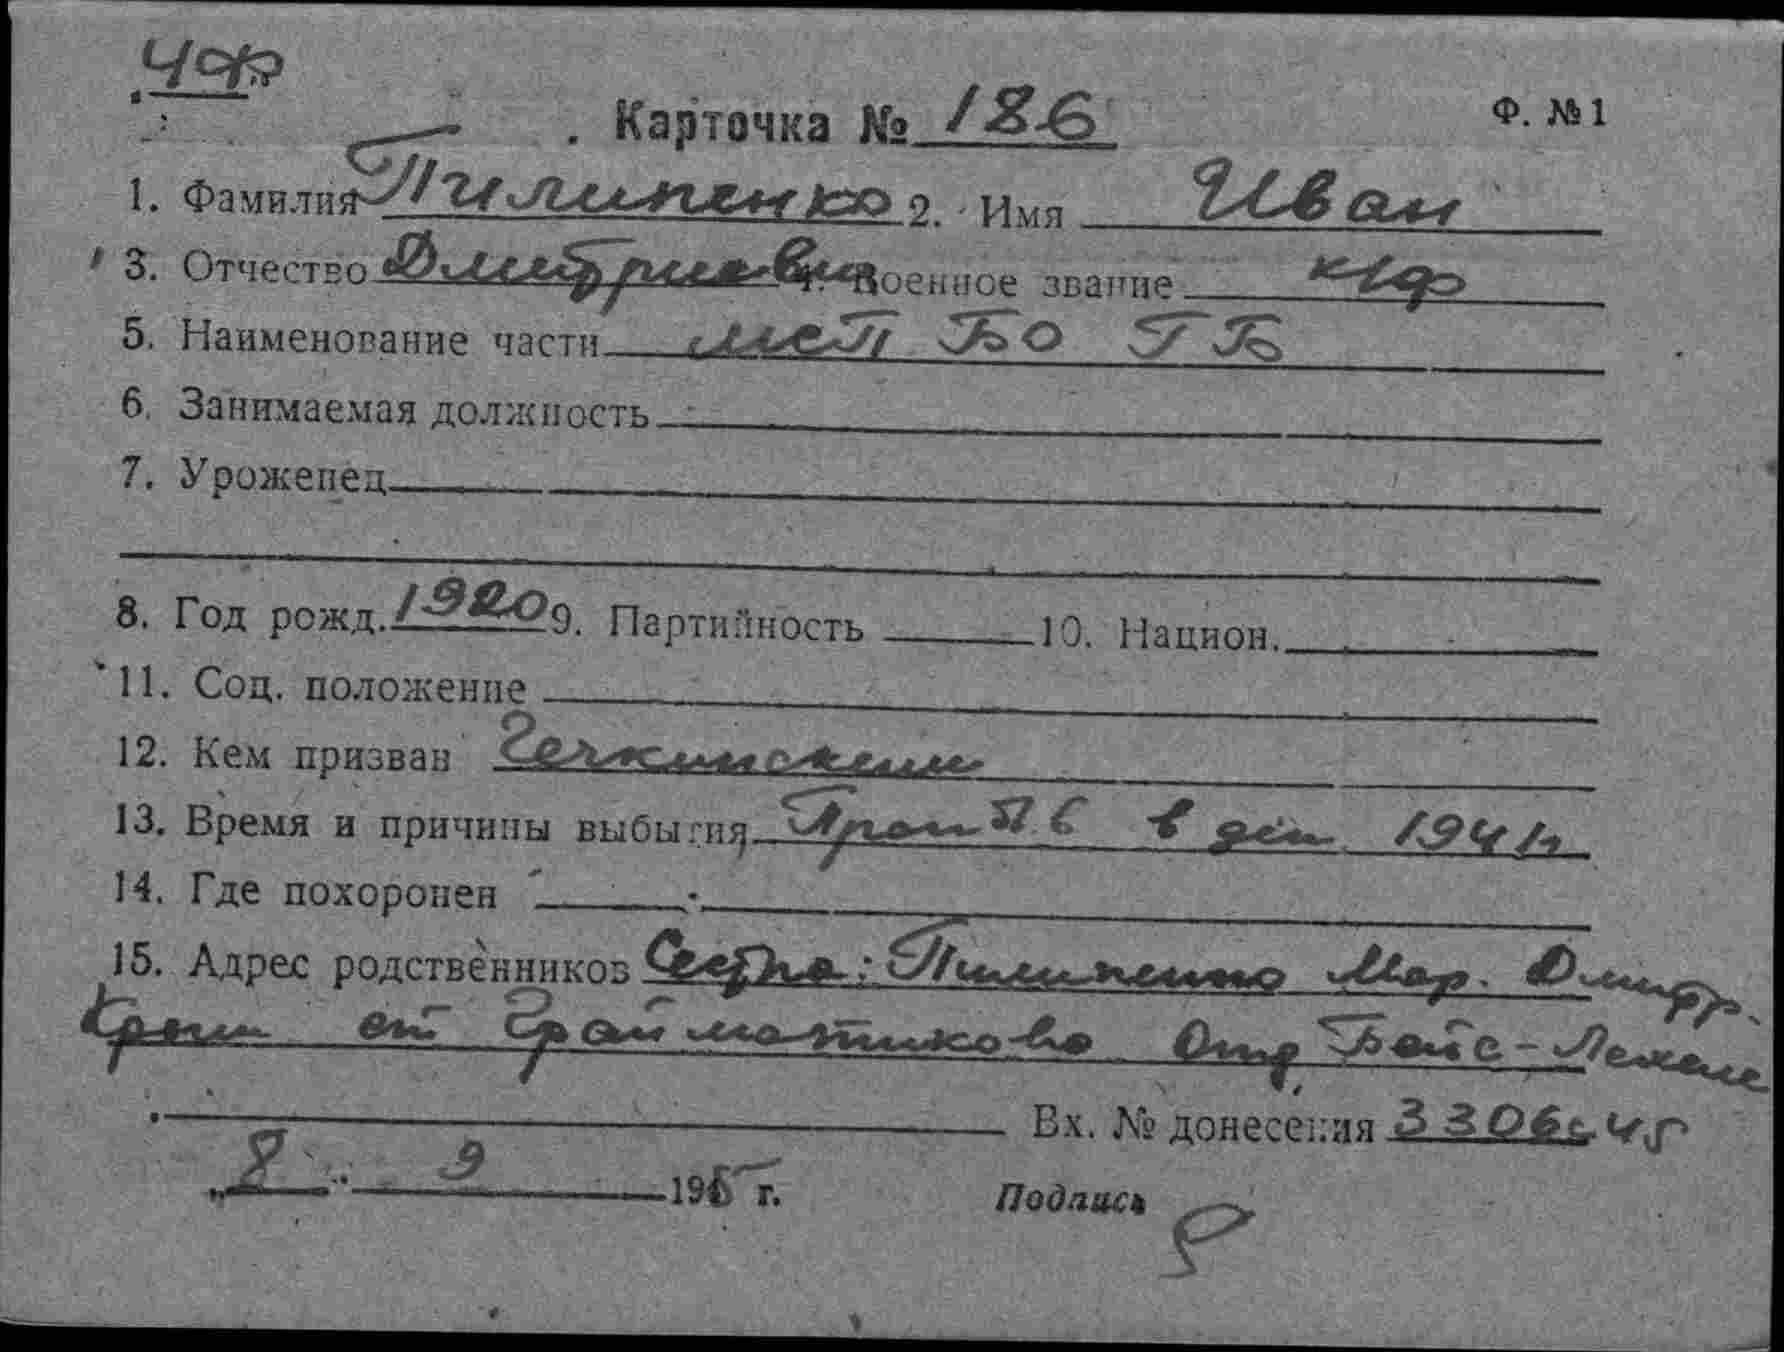 ЧФ
Карточка № 186 Ф. № 1
1. Фамилия Пилипенко 2. Имя Иван
3. Отчество Дмитриевич 4. Военное звание к/ф
5. Наименование части БО ГБ
6. Занимаемая должность
7. Уроженец
8. Год рожд. 1920 9. Партийность 10. Национ.
11. Соц. положение
12. Кем призван
13. Время и причины выбытия Проп в 1941
14. Где похоронен
15. Адрес родственников Сестра: Пилипенко Мар. Дмитр.
Крым ст Грамматиково Отд
Вх. № донесения 3306с 45
„8“ 9 1945 г. Подпись